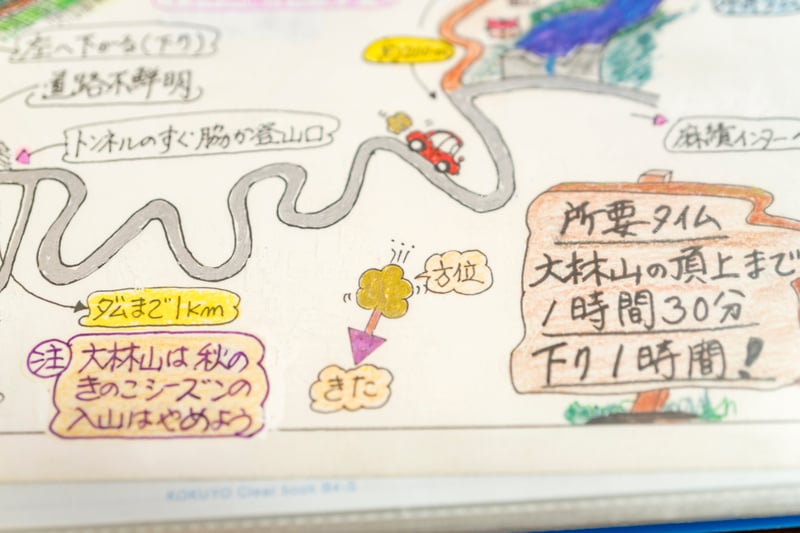 左へ下がる(下り)
道路不鮮明
トンネルのすぐ脇が登山口
約200m
麻績インターへ
所要タイム
大林山の頂上まで
1時間30分
下り1時間!
方位
きた
ダムまで1km
注
大林山は秋の
きのこシーズンの
入山はやめよう
KOKUYO Clear book B4-S